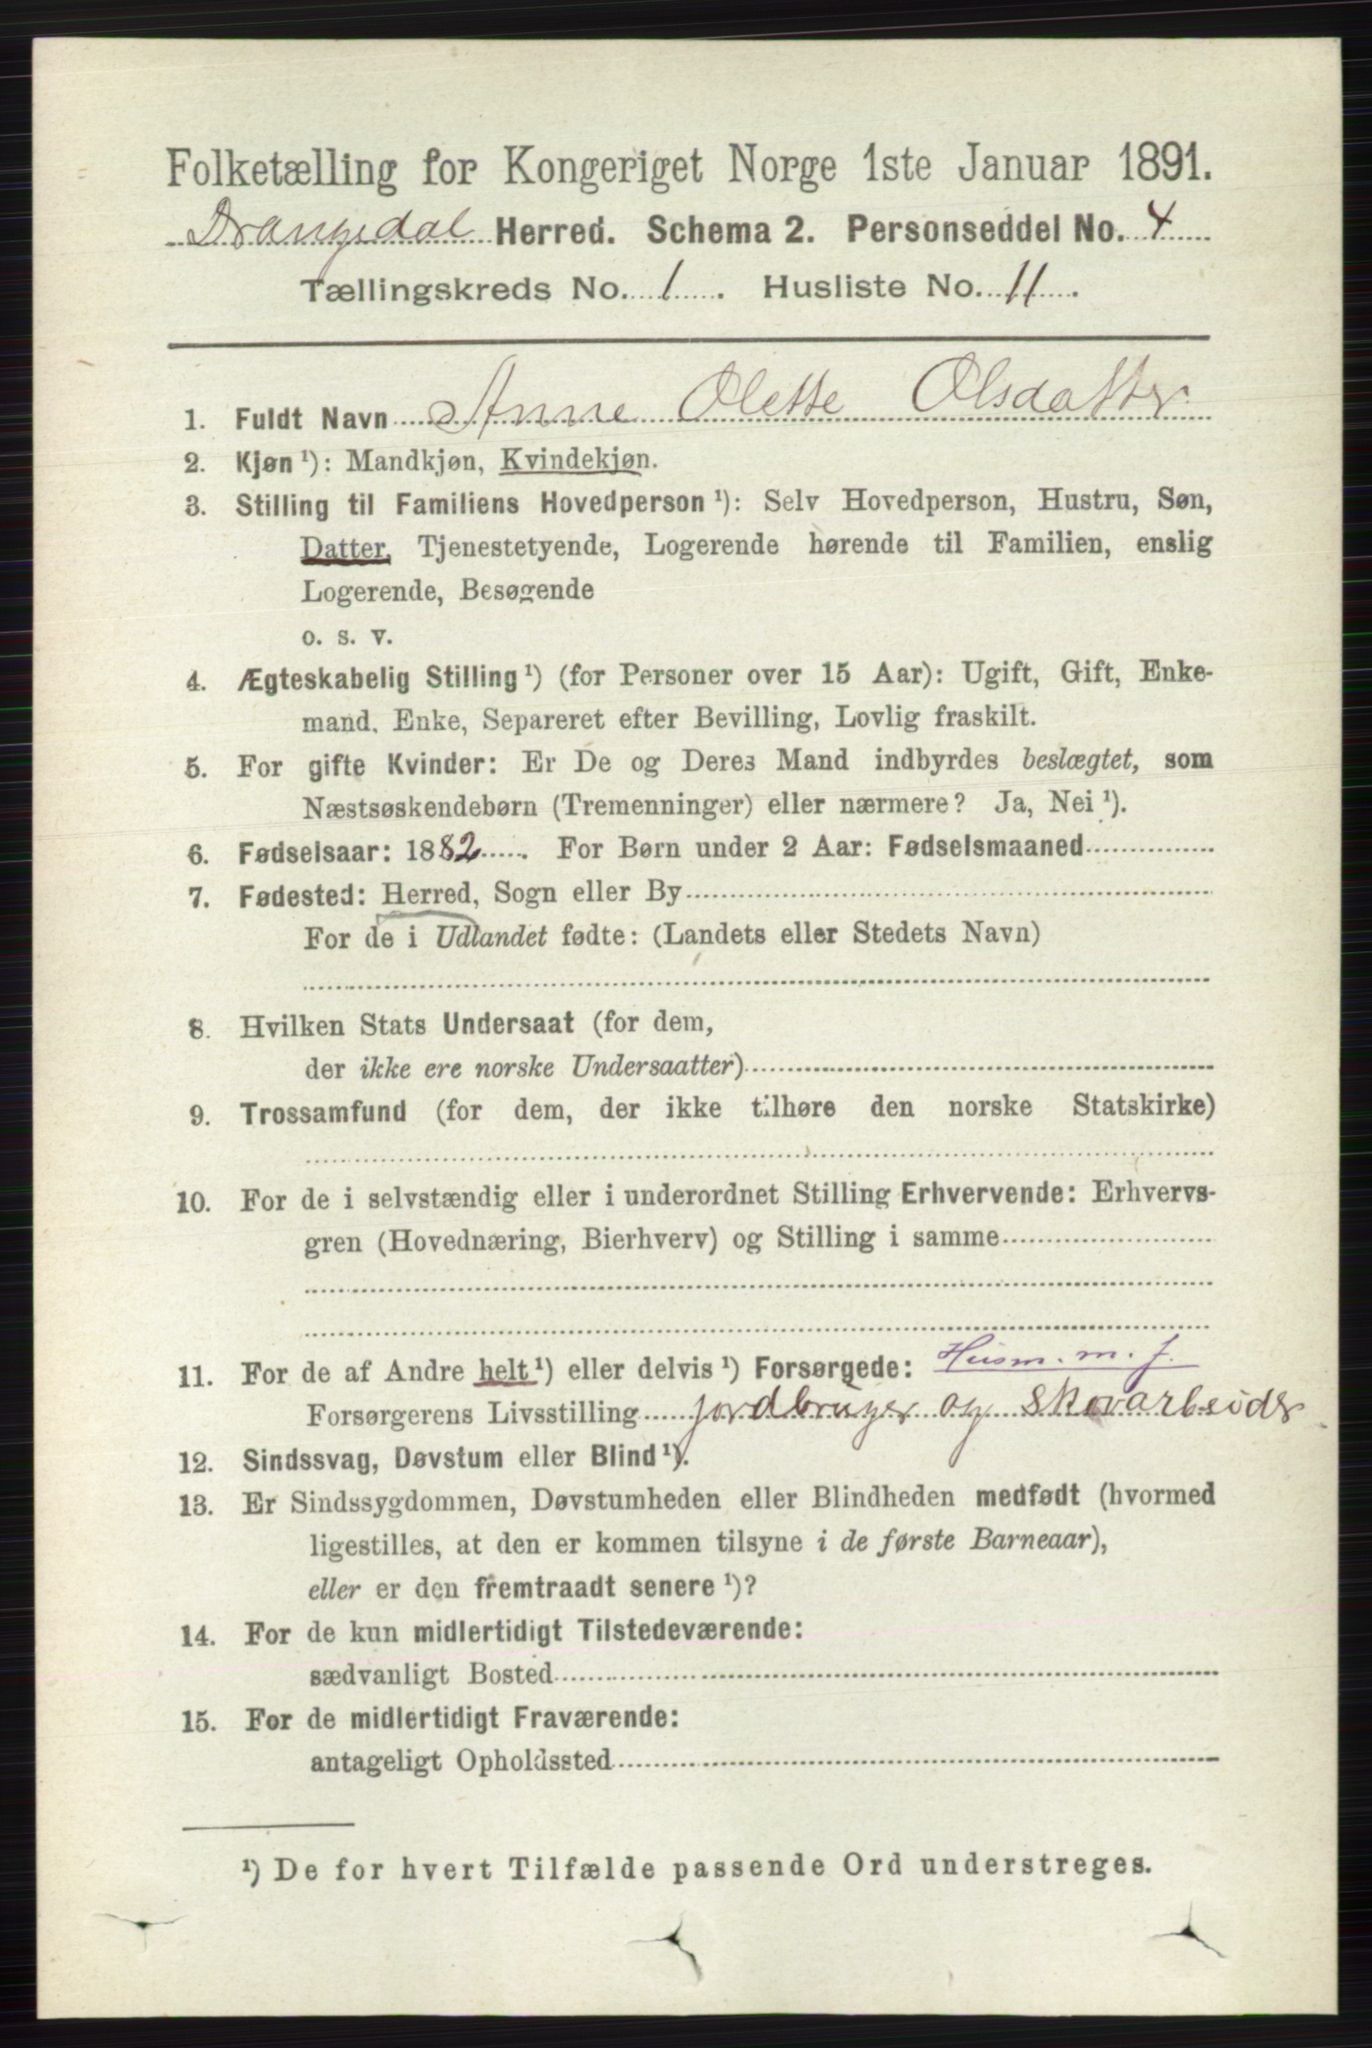 Folketælling for Kongeriget Norge 1ste Januar 1891.
Drangedal Herred. Schema 2. Personseddel No. 4
Tællingskreds No. 1. Husliste No. 11.
1. Fuldt Navn Anne Olette Olsdatter
2. Kjøn ¹): Mandkjøn, Kvindekjøn.
3. Stilling til Familiens Hovedperson ¹): Selv Hovedperson, Hustru, Søn,
Datter, Tjenestetyende, Logerende hørende til Familien, enslig
Logerende, Besøgende
o. s. v.
4. Ægteskabelig Stilling ¹) (for Personer over 15 Aar): Ugift, Gift, Enke-
mand, Enke, Separeret efter Bevilling, Lovlig fraskilt.
5. For gifte Kvinder: Er De og Deres Mand indbyrdes beslægtet, som
Næstsøskendebørn (Tremenninger) eller nærmere? Ja, Nei ¹).
6. Fødselsaar: 1882. For Børn under 2 Aar: Fødselsmaaned
7. Fødested: Herred, Sogn eller By
For de i Udlandet fødte: (Landets eller Stedets Navn)
8. Hvilken Stats Undersaat (for dem,
der ikke ere norske Undersaatter)
9. Trossamfund (for dem, der ikke tilhøre den norske Statskirke)
10. For de i selvstændig eller i underordnet Stilling Erhvervende: Erhvervs-
gren (Hovednæring, Bierhverv) og Stilling i samme
11. For de af Andre helt ¹) eller delvis ¹) Forsørgede: Husm. m. j.
Forsørgerens Livsstilling jordbruger og skovarbeider
12. Sindssvag, Døvstum eller Blind ¹).
13. Er Sindssygdommen, Døvstumheden eller Blindheden medfødt (hvormed
ligestilles, at den er kommen tilsyne i de første Barneaar),
eller er den fremtraadt senere ¹)?
14. For de kun midlertidigt Tilstedeværende:
sædvanligt Bosted
15. For de midlertidigt Fraværende:
antageligt Opholdssted
¹) De for hvert Tilfælde passende Ord understreges.